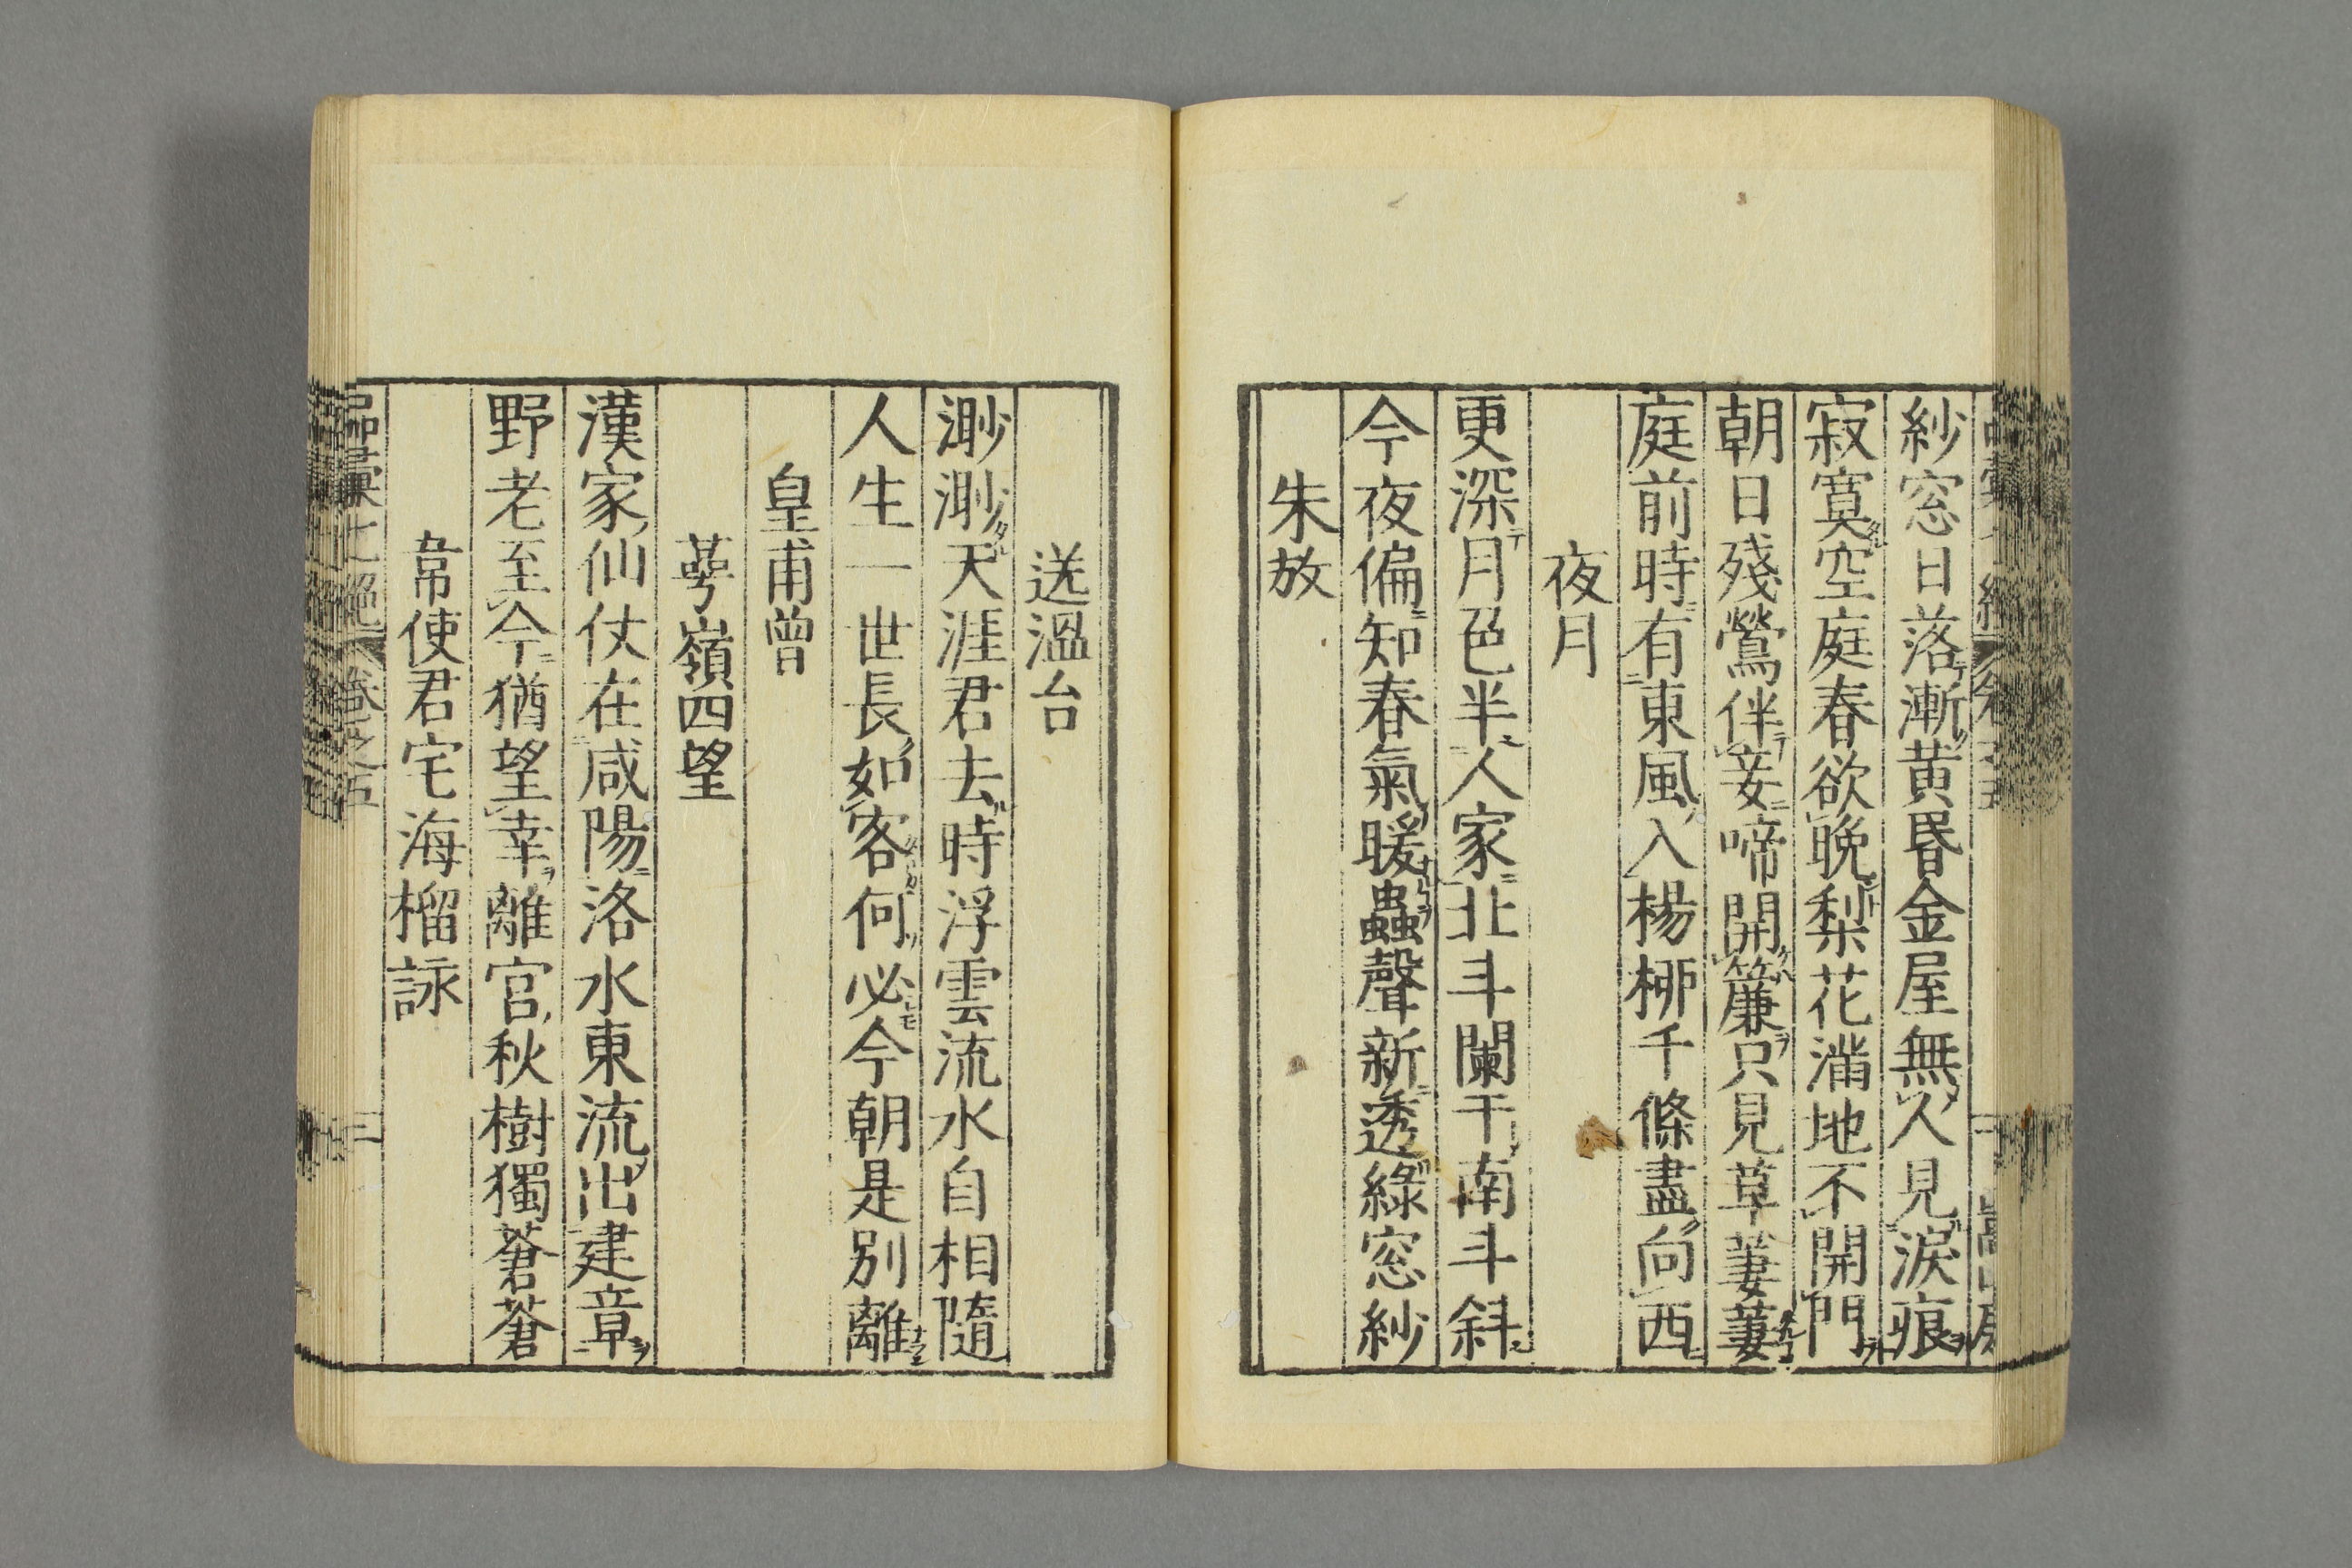 紗窓日落漸黄昏金屋無人見淚痕
寂寞空庭春欲晚梨花滿地不開門
朝日殘鶯伴妾啼開簾只見草萋萋
庭前時有東風入楊桺千條盡向西
夜月
更深月色半人家北斗闌干南斗斜
今夜偏知春氣暖蟲聲新透綠窓紗
朱放
送溫台
渺渺天涯君去時浮雲流水自相隨
人生一世長如客何必今朝是別離
皇甫曾
萼嶺四望
漢家仙仗在咸陽洛水東流出建章
野老至今猶望幸離宮秋樹獨蒼蒼
韋使君宅海榴詠